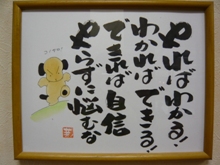 やればわかる!
わかればできる!
できれば自信
やらずに悩むな